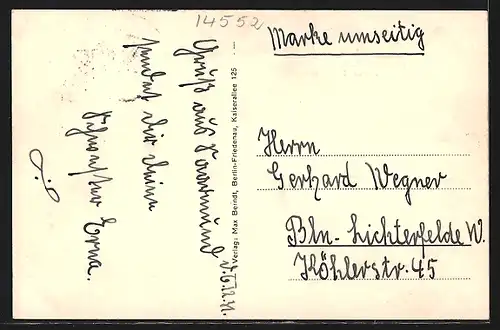 14552
Marke umseitig
Gruß aus
sendet dir deine
Schwester Erna.
Verlag: Max Beindt, Berlin-Friedenau, Kaiserallee 125
Herrn
Gerhard Wegner
Bln- Lichterfelde W.
Köhlerstr. 45